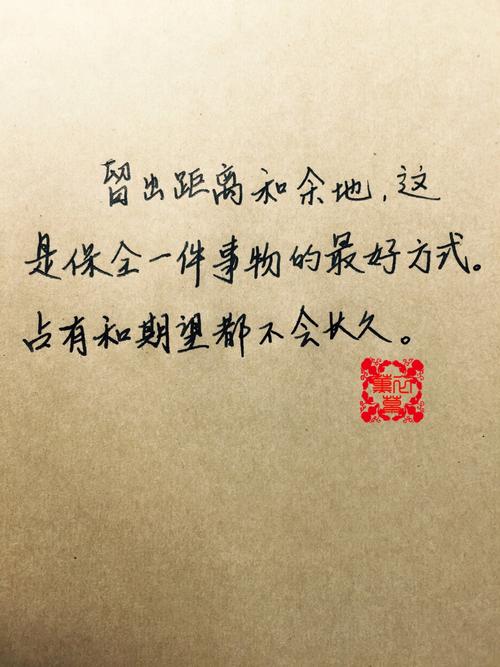 留出距离和余地,这
是保全一件事物的最好方式。
占有和期望都不会长久。